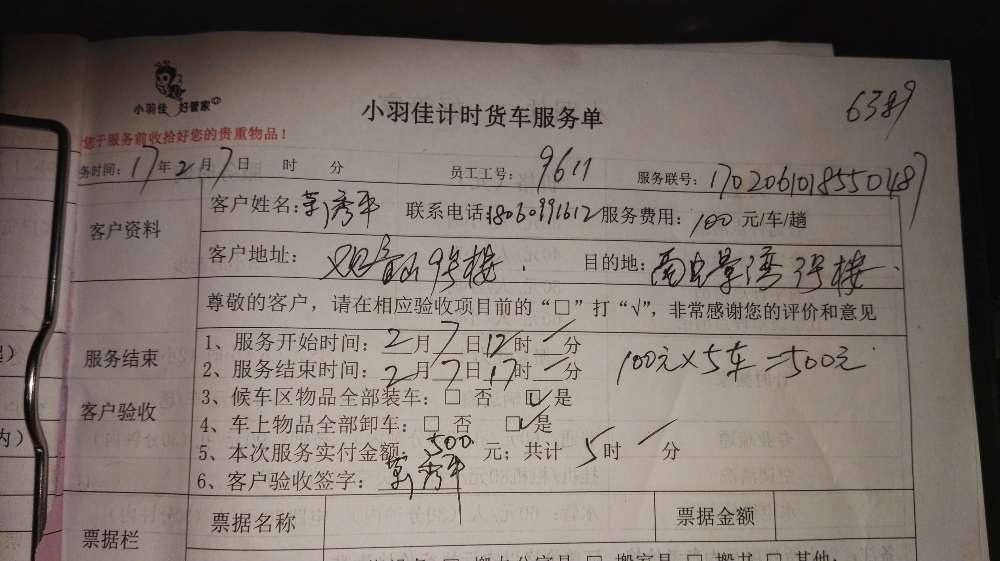 小羽佳 好管家
小羽佳计时货车服务单
6389
您于服务前收拾好您的贵重物品！
务时间：17年2月7日 时 分 员工工号：9611 服务联号：1702061018550487
客户资料
客户姓名： 秀平 联系电话：18060991612 服务费用：100元/车/趟
客户地址： 9号楼 目的地： 湾 号楼
尊敬的客户，请在相应验收项目前的“□”打“√”，非常感谢您的评价和意见
服务结束
客户验收
1、服务开始时间：2月7日12时 分
100元×5车=500元
2、服务结束时间：2月7日17时 分
3、候车区物品全部装车：□ 否 ☑ 是
4、车上物品全部卸车：□ 否 ☑ 是
5、本次服务实付金额：500元；共计 5时 分
6、客户验收签字： 秀平
票据栏
票据名称 票据金额
□ 搬家具 □ 搬书 □ 其他：